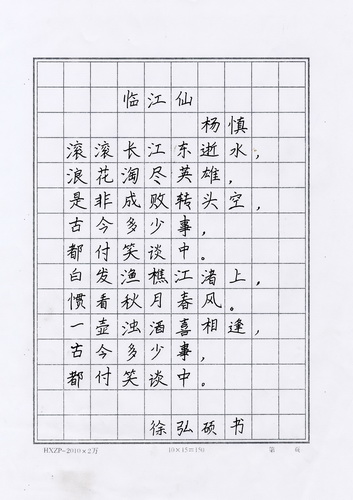 临江仙
杨慎
滚滚长江东逝水，
浪花淘尽英雄，
是非成败转头空，
古今多少事，
都付笑谈中。
白发渔樵江渚上，
惯看秋月春风。
一壶浊酒喜相逢，
古今多少事，
都付笑谈中。
徐弘硕书
HXZP-2010×2万 10×15=150 第 页